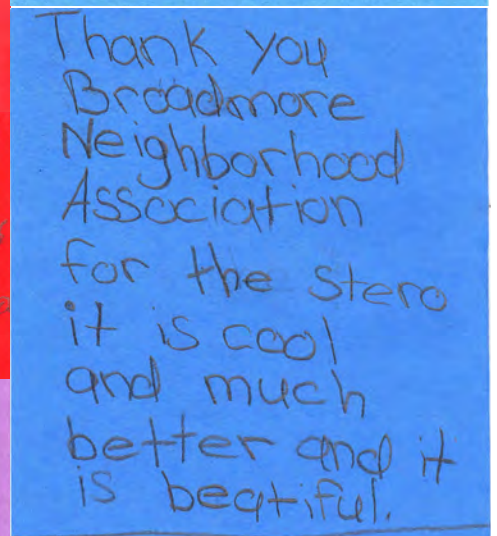 Thank you
Broadmore
Neighborhood
Association
for the stero
it is cool
and much
better and it
is beatiful.